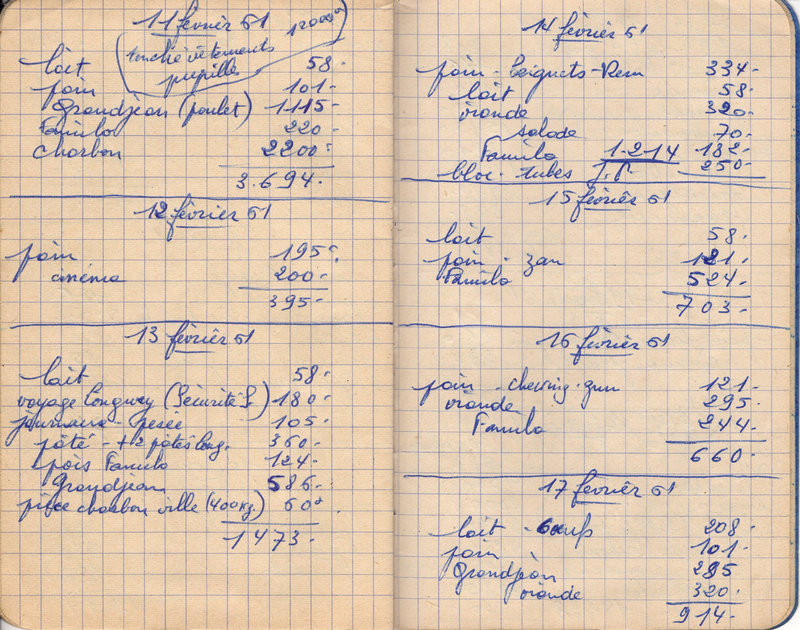 11 février 51
touché vêtements 12000
pupille
lait 58-
pain 101-
Grandjean (poulet) 1115-
Famila 220-
charbon 2200-
3.694-
12 février 51
pain 195-
cinéma 200-
395-
13 février 51
lait 58-
voyage Longwy (Sécurité S.) 180-
journaux - pesée 105-
pâté - + 2 pâtés long. 360-
pois Famila 124-
Grandjean 586-
pièce charbon ville (400kg) 60
1473-
14 février 51
pain - Beignets - 334-
lait 58-
viande 320-
salade 70-
Famila 1-2-14 132-
bloc - tubes 250-
15 février 51
lait 58-
pain - zan 121-
Famila 524-
703-
16 février 51
pain - chewing-gum 121-
viande 295-
Famila 244-
660-
17 février 51
lait - 6 œufs 208-
pain 101-
Grandjean 285
viande 320-
914-